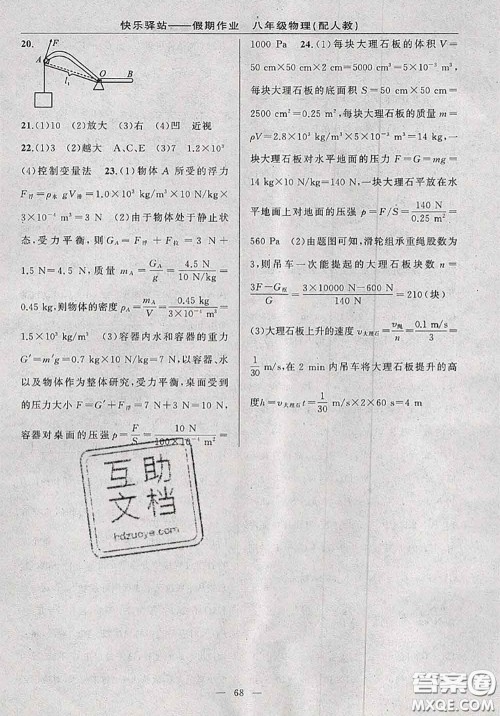 快乐驿站——假期作业　八年级物理(配人教)
20.
F
A
O
l₁
21.(1)10　(2)放大　(3)右　(4)凹　近视
22.(1)3　(2)越大　A、C、E　(3)7　1.2×10³
(4)控制变量法　23.(1)物体 A 所受的浮力
F浮=ρ水gV物=1.0×10³ kg/m³×10 N/kg
×3×10⁻⁴ m³=3 N　(2)由于物体处于静止状
态,受力平衡,则有 G=F浮+F拉=3 N+
1.5 N=4.5 N,质量 mA=GA/g=4.5 N/10 N/kg=
0.45 kg,则物体的密度 ρ=mA/V=0.45 kg/3×10⁻⁴ m³=
1.5×10³ kg/m³　(3)容器内水和容器的重力
G′=m′g=0.7 kg×10 N/kg=7 N,以容器、水
以及物体作为整体研究,受力平衡,桌面受到
的压力大小 F=G′+F浮=7 N+3 N=10 N,
容器对桌面的压强 p=F/S=10 N/100×10⁻⁴ m²=
1000 Pa　24.(1)每块大理石板的体积 V=
50 cm×50 cm×2 cm=5000 cm³=5×10⁻³ m³
每块大理石板的底面积 S=50 cm×50 cm=
2500 cm²=0.25 m²,每块大理石板的质量 m=
ρV=2.8×10³ kg/m³×5×10⁻³ m³=14 kg,一
块大理石板对水平地面的压力 F=G=mg=
14 kg×10 N/kg=140 N,一块大理石平放在水
平地面上对地面的压强 p=F/S=140 N/0.25 m²=
560 Pa　(2)由题图可知,滑轮组承重绳股数为
3,则吊车一次能提起的大理石板块数 n=
3F-G板/G=3×10000 N-600 N/140 N=210(块)
(3)大理石板上升的速度 v大理石=v绳/n=0.1 m/s/3=
1/30 m/s,在 2 min 内吊车将大理石板提升的高
度 h=v大理石t=1/30 m/s×2×60 s=4 m
互助
文档
hdzuoye.com
— 68 —
答案圈
MXQE.COM